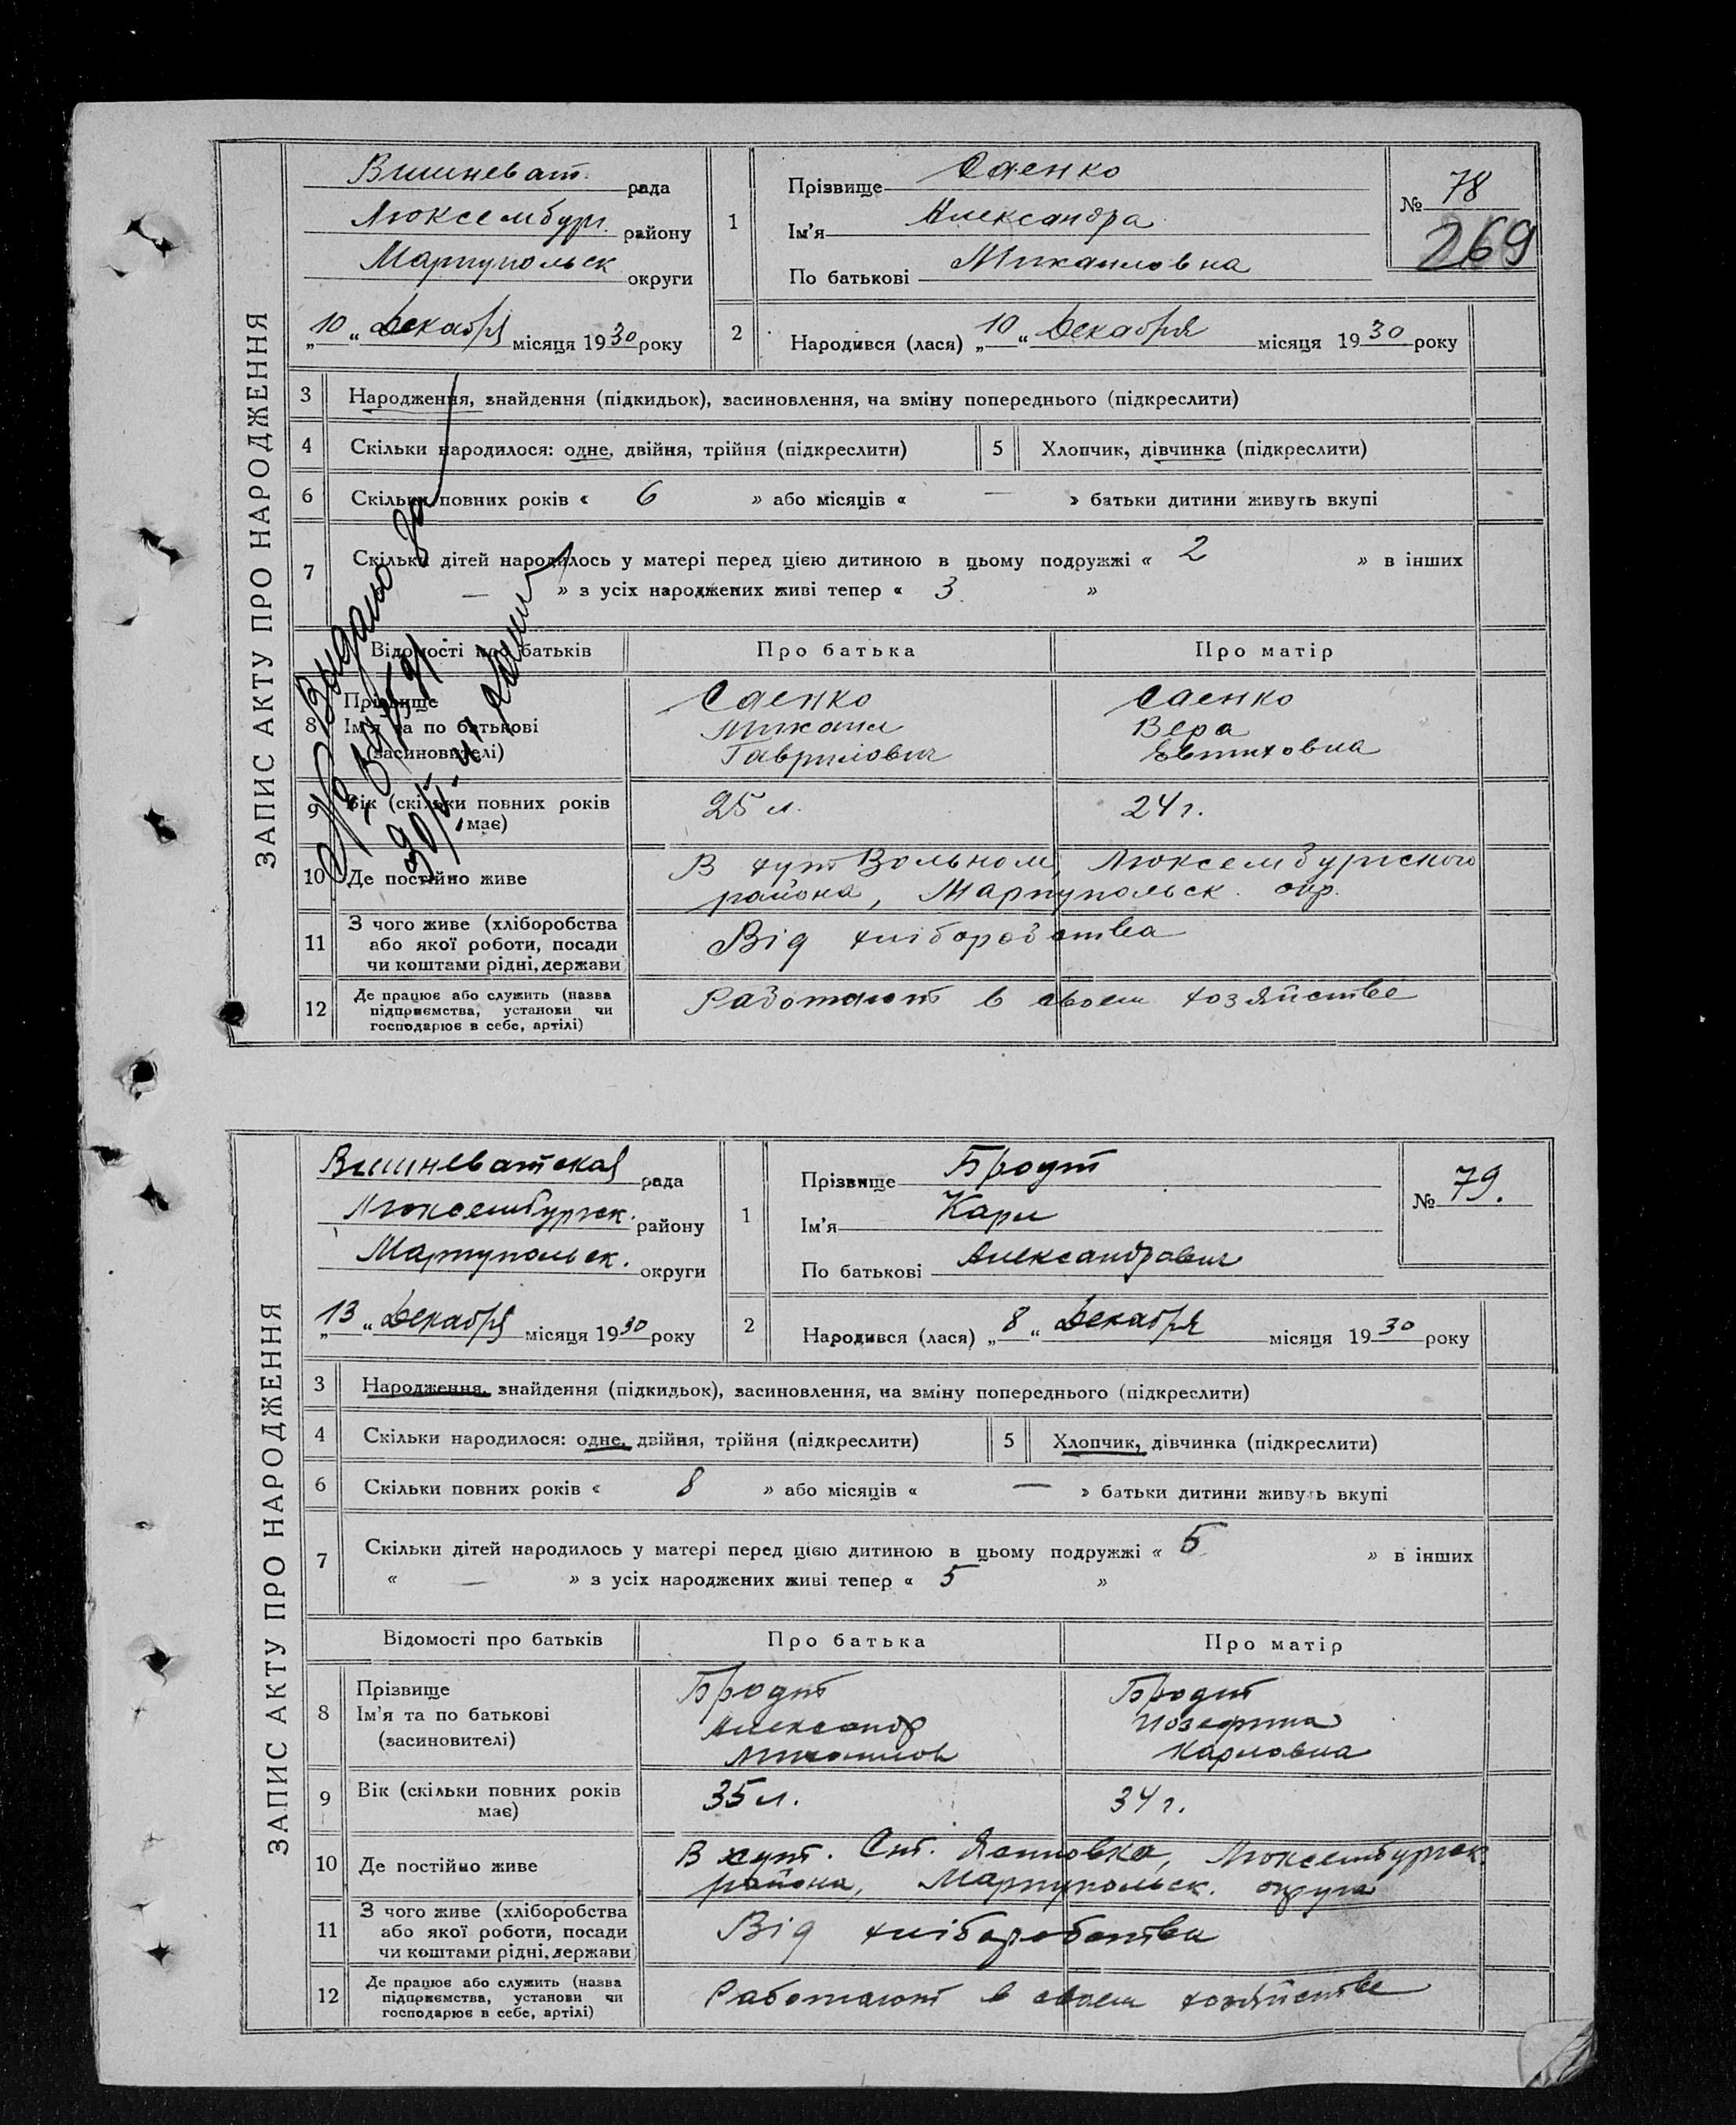 ЗАПИС АКТУ ПРО НАРОДЖЕННЯ
Вишневат. рада
Люксембург. району
Мариупольск округи
„10“ Декабря місяця 1930 року
1 Прізвище Саенко
Ім'я Александра
По батькові Михаиловна
№ 78
269
2 Народився (лася) „10“ Декабря місяця 1930 року
3 Народження, знайдення (підкидьок), засиновлення, на зміну попереднього (підкреслити)
4 Скільки народилося: одне, двійня, трійня (підкреслити) 5 Хлопчик, дівчинка (підкреслити)
6 Скільки повних років « 6 » або місяців « — » батьки дитини живуть вкупі
7 Скільки дітей народилось у матері перед цією дитиною в цьому подружжі « 2 » в інших
— » з усіх народжених живі тепер « 3 »
Відомості про батьків Про батька Про матір
8 Прізвище Саенко Саенко
Ім'я та по батькові Михаил Вера
(засиновителі) Гаврилович Евтиховна
9 Вік (скільки повних років 25 л. 24 г.
має)
10 Де постійно живе В хут Вольном, Люксембургского
района, Мариупольск. окр.
11 З чого живе (хліборобства
або якої роботи, посади Від хліборобства
чи коштами рідні, держави
12 Де працює або служить (назва Работают в своем хозяйстве
підприємства, установи чи
господарює в себе, артілі)
Видано
ЗАПИС АКТУ ПРО НАРОДЖЕННЯ
Вишневатская рада
Люксембургск. району
Мариупольск. округи
„13“ Декабря місяця 1930 року
1 Прізвище Бродт
Ім'я Карл
По батькові Александрович
№ 79.
2 Народився (лася) „8“ Декабря місяця 1930 року
3 Народження, знайдення (підкидьок), засиновлення, на зміну попереднього (підкреслити)
4 Скільки народилося: одне, двійня, трійня (підкреслити) 5 Хлопчик, дівчинка (підкреслити)
6 Скільки повних років « 8 » або місяців « — » батьки дитини живуть вкупі
7 Скільки дітей народилось у матері перед цією дитиною в цьому подружжі « 5 » в інших
« — » з усіх народжених живі тепер « 5 »
Відомості про батьків Про батька Про матір
8 Прізвище Бродт Бродт
Ім'я та по батькові Александр Иозефина
(засиновителі) Михаилов Карловна
9 Вік (скільки повних років 35 л. 34 г.
має)
10 Де постійно живе В хут. Люксембургск.
района, Мариупольск. округа
11 З чого живе (хліборобства
або якої роботи, посади Від хліборобства
чи коштами рідні, держави
12 Де працює або служить (назва Работают в своем хозяйстве
підприємства, установи чи
господарює в себе, артілі)